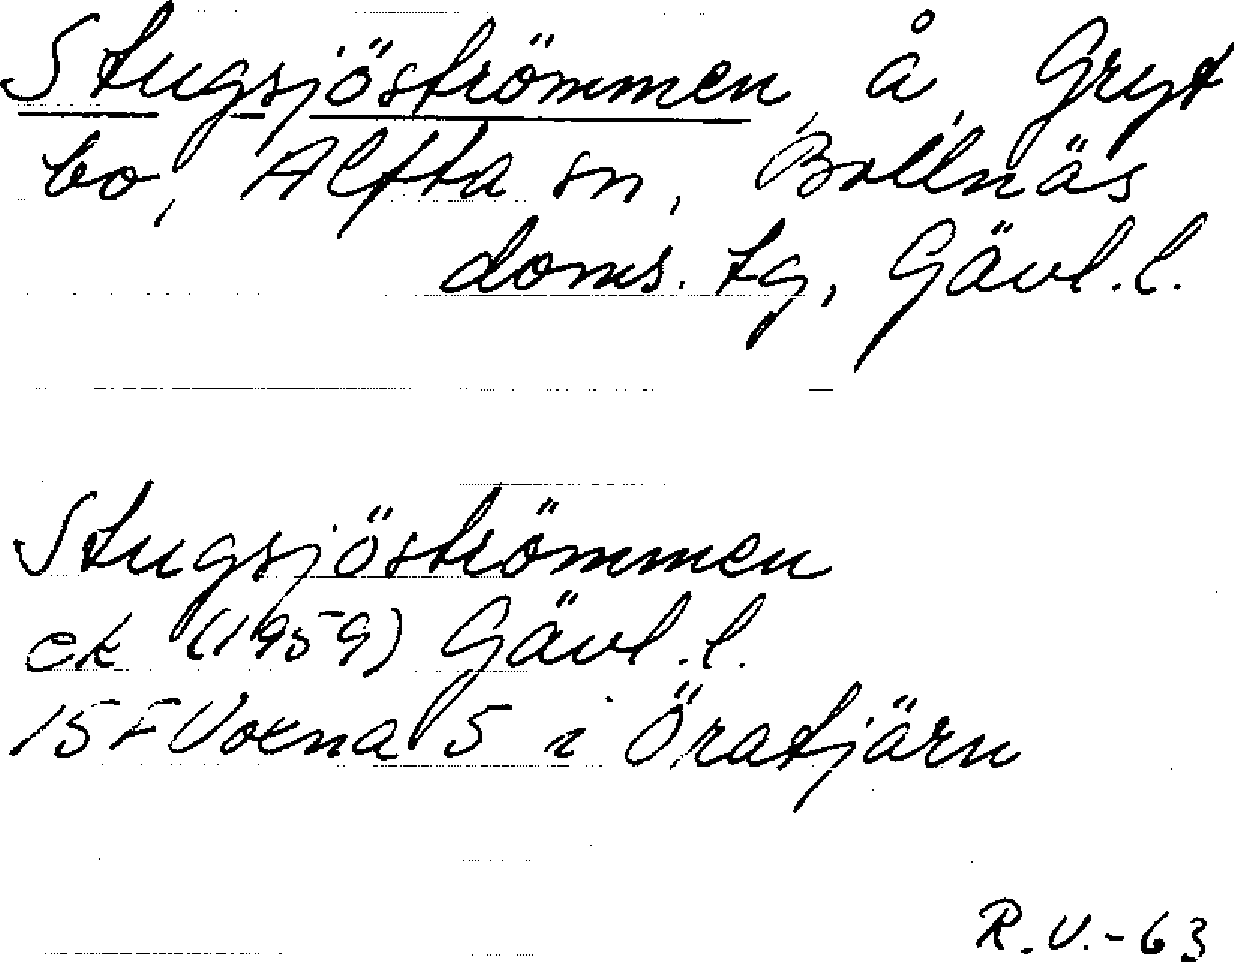 Stugsjöströmmen, å, Gryt
bo, Alfta sn, Bollnäs
doms. tg, Gävl.l.
Stugsjöströmmen
ek (1959) Gävl.l.
15F Voxna 5 i Öratjärn
R.V.-63